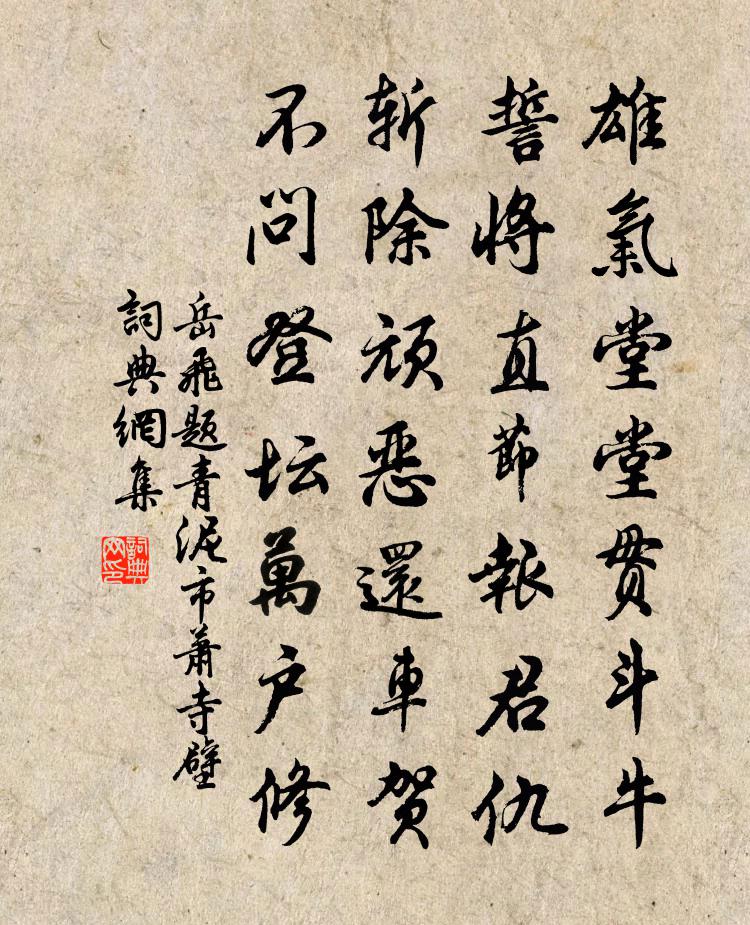 雄氣堂堂貫斗牛
誓將直節報君仇
斬除頑惡還車賀
不問登坛萬户修
岳飛題青泥市蕭寺壁
詞典網集
詞典网印